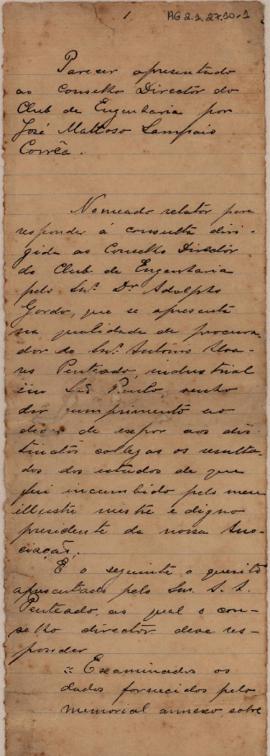 1
AG 2.2.27.30.1
Parecer apresentado
ao Conselho Director do
Club de Engenharia por
José Mattoso Sampaio
Corrêa.
Nomeado relator para
responder á consulta diri-
gida ao Conselho Director
do Club de Engenharia
pelo Snr. Dr. Adolpho
Gordo, que se apresenta
na qualidade de procura-
dor do Snr. Antonio Alva-
res Penteado, industrial
em São Paulo, venho
dar cumprimento ao
dever de expor aos dis-
tinctos collegas os resulta-
dos dos estudos de que
fui incumbido pelo meu
illustre mestre e digno
presidente da nossa Asso-
ciação.
É o seguinte o quesito
apresentado pelo Snr. A. A.
Penteado, ao qual o con-
selho director deve res-
ponder
= Examinados os
dados fornecidos pelo
memorial annexo sobre